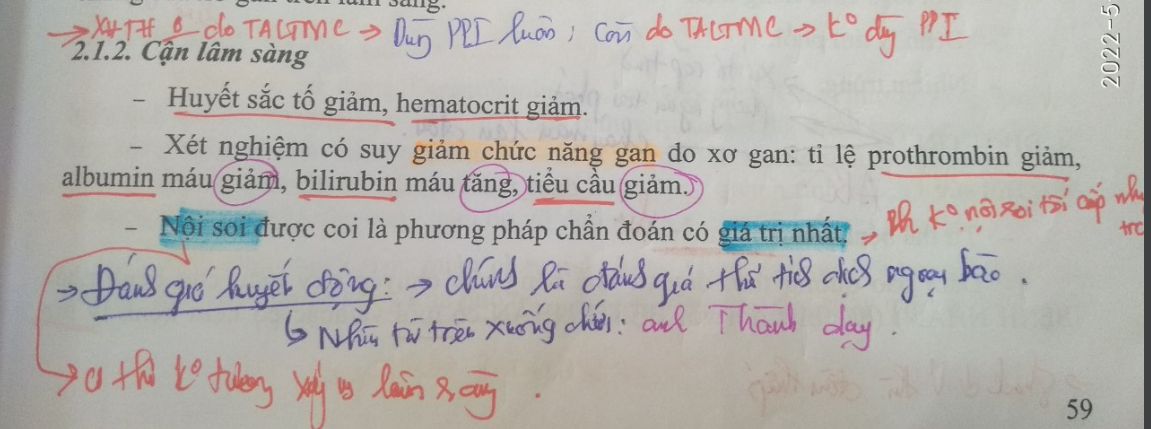 → XHTH k° do TALTMC → Dùng PPI luôn; còn do TALTMC → k° dùng PPI
2022-5
2.1.2. Cận lâm sàng
– Huyết sắc tố giảm, hematocrit giảm.
– Xét nghiệm có suy giảm chức năng gan do xơ gan: tỉ lệ prothrombin giảm,
albumin máu giảm, bilirubin máu tăng, tiểu cầu giảm.
– Nội soi được coi là phương pháp chẩn đoán có giá trị nhất. → k° nội soi tối cấp
→ Đánh giá huyết động: → chính là đánh giá thể tích dịch ngoại bào.
↳ Nhìn từ trên xuống dưới: anh Thành dạy.
→ thì k° tương xứng lâm sàng.
59